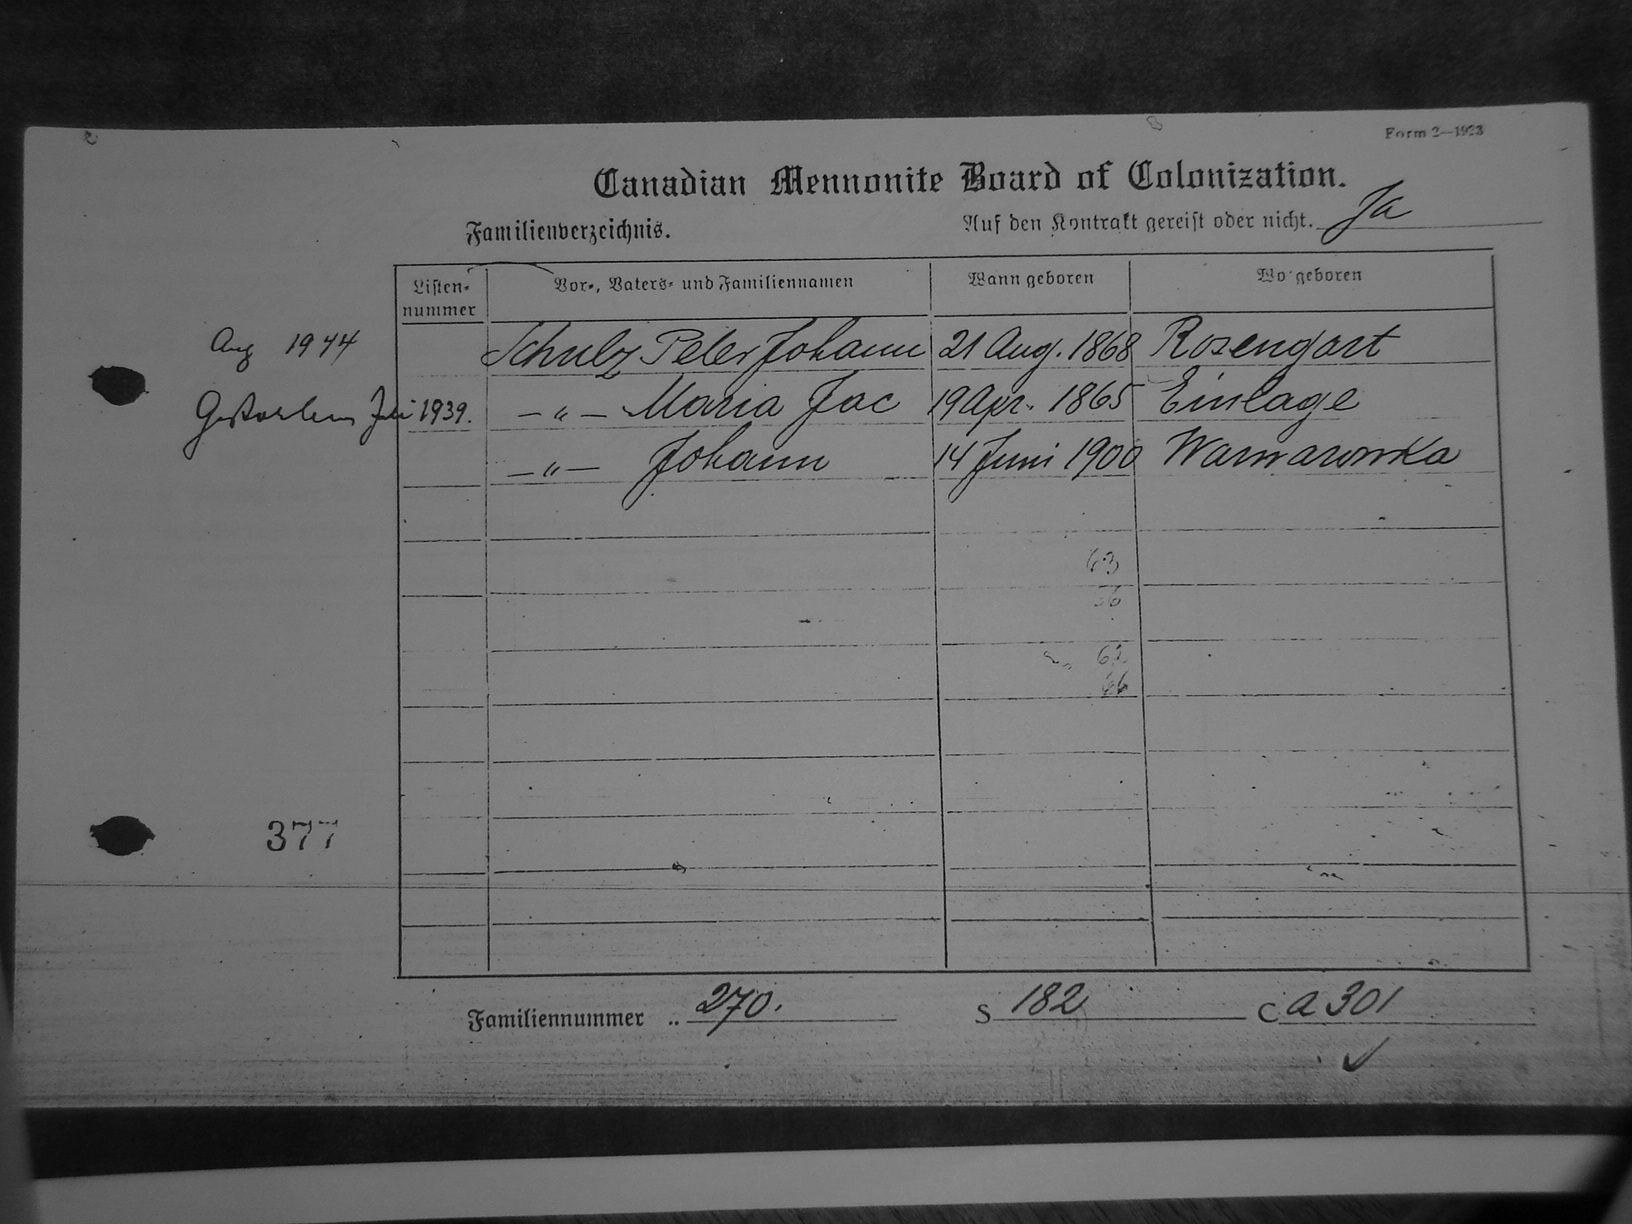 Form 2—1923
Canadian Mennonite Board of Colonization.
Familienverzeichnis. Auf den Kontrakt gereist oder nicht. Ja
Listen-nummer Vor-, Vaters- und Familiennamen Wann geboren Wo geboren
Aug 1944 Schulz Peter Johann 21 Aug. 1868 Rosengart
Gestorben 1939. —"— Maria Jac 19 Apr. 1865 Einlage
—"— Johann 14 Juni 1900 Warwarowka
63
56
62
66
377
Familiennummer .. 270. S 182 C a 301